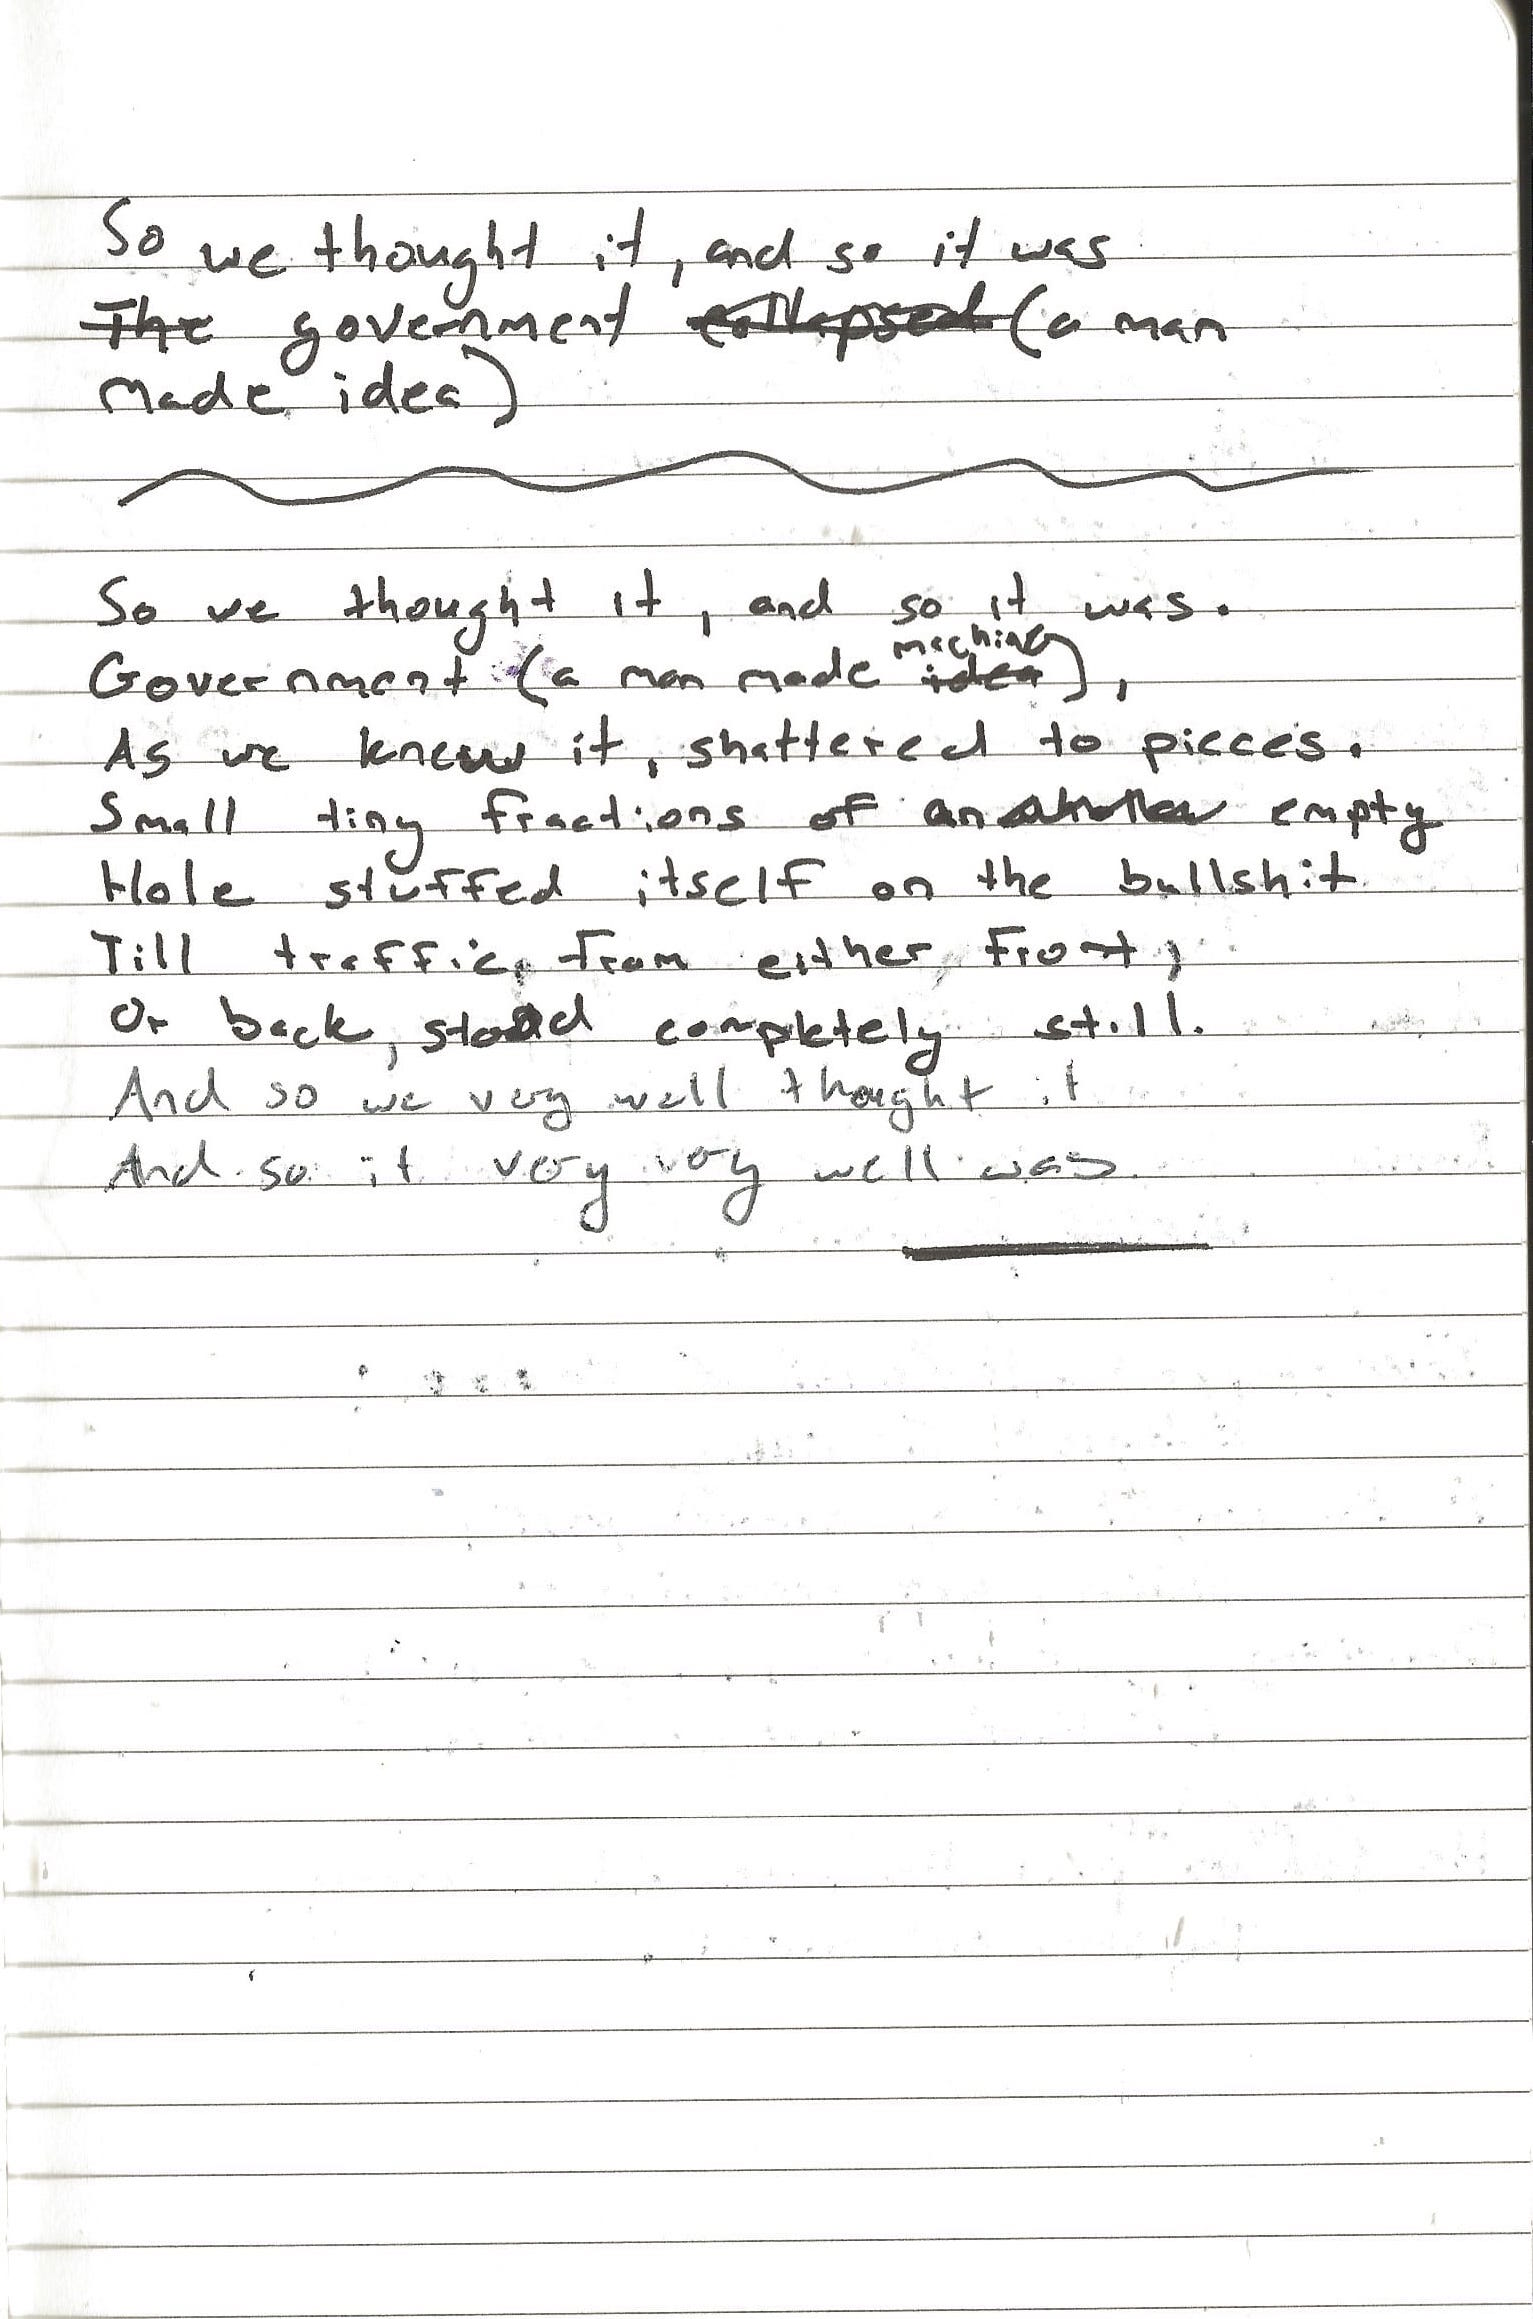 So we thought it, and so it was
The government collapsed (a man
made idea)
So we thought it, and so it was.
Government (a man made machine idea),
As we knew it, shattered to pieces.
Small tiny fractions of an empty
Hole stuffed itself on the bullshit
Till traffic, from either front,
Or back, stood completely still.
And so we very well thought it
And so it very very well was